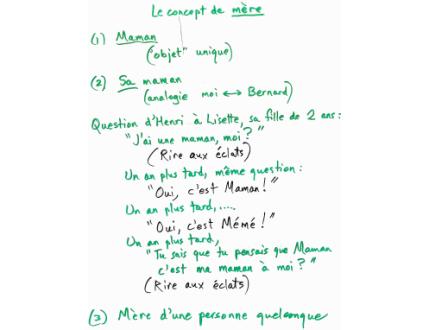 Le concept de mère
(1) Maman
("objet" unique)
(2) Sa maman
(analogie moi ↔ Bernard)
Question d'Henri à Lisette, sa fille de 2 ans :
"J'ai une maman, moi ?"
(Rire aux éclats)
Un an plus tard, même question :
"Oui, c'est Maman !"
Un an plus tard,....
"Oui, c'est Mémé !"
Un an plus tard,
"Tu sais que tu pensais que Maman
c'est ma maman à moi ?"
(Rire aux éclats)
(3) Mère d'une personne quelconque